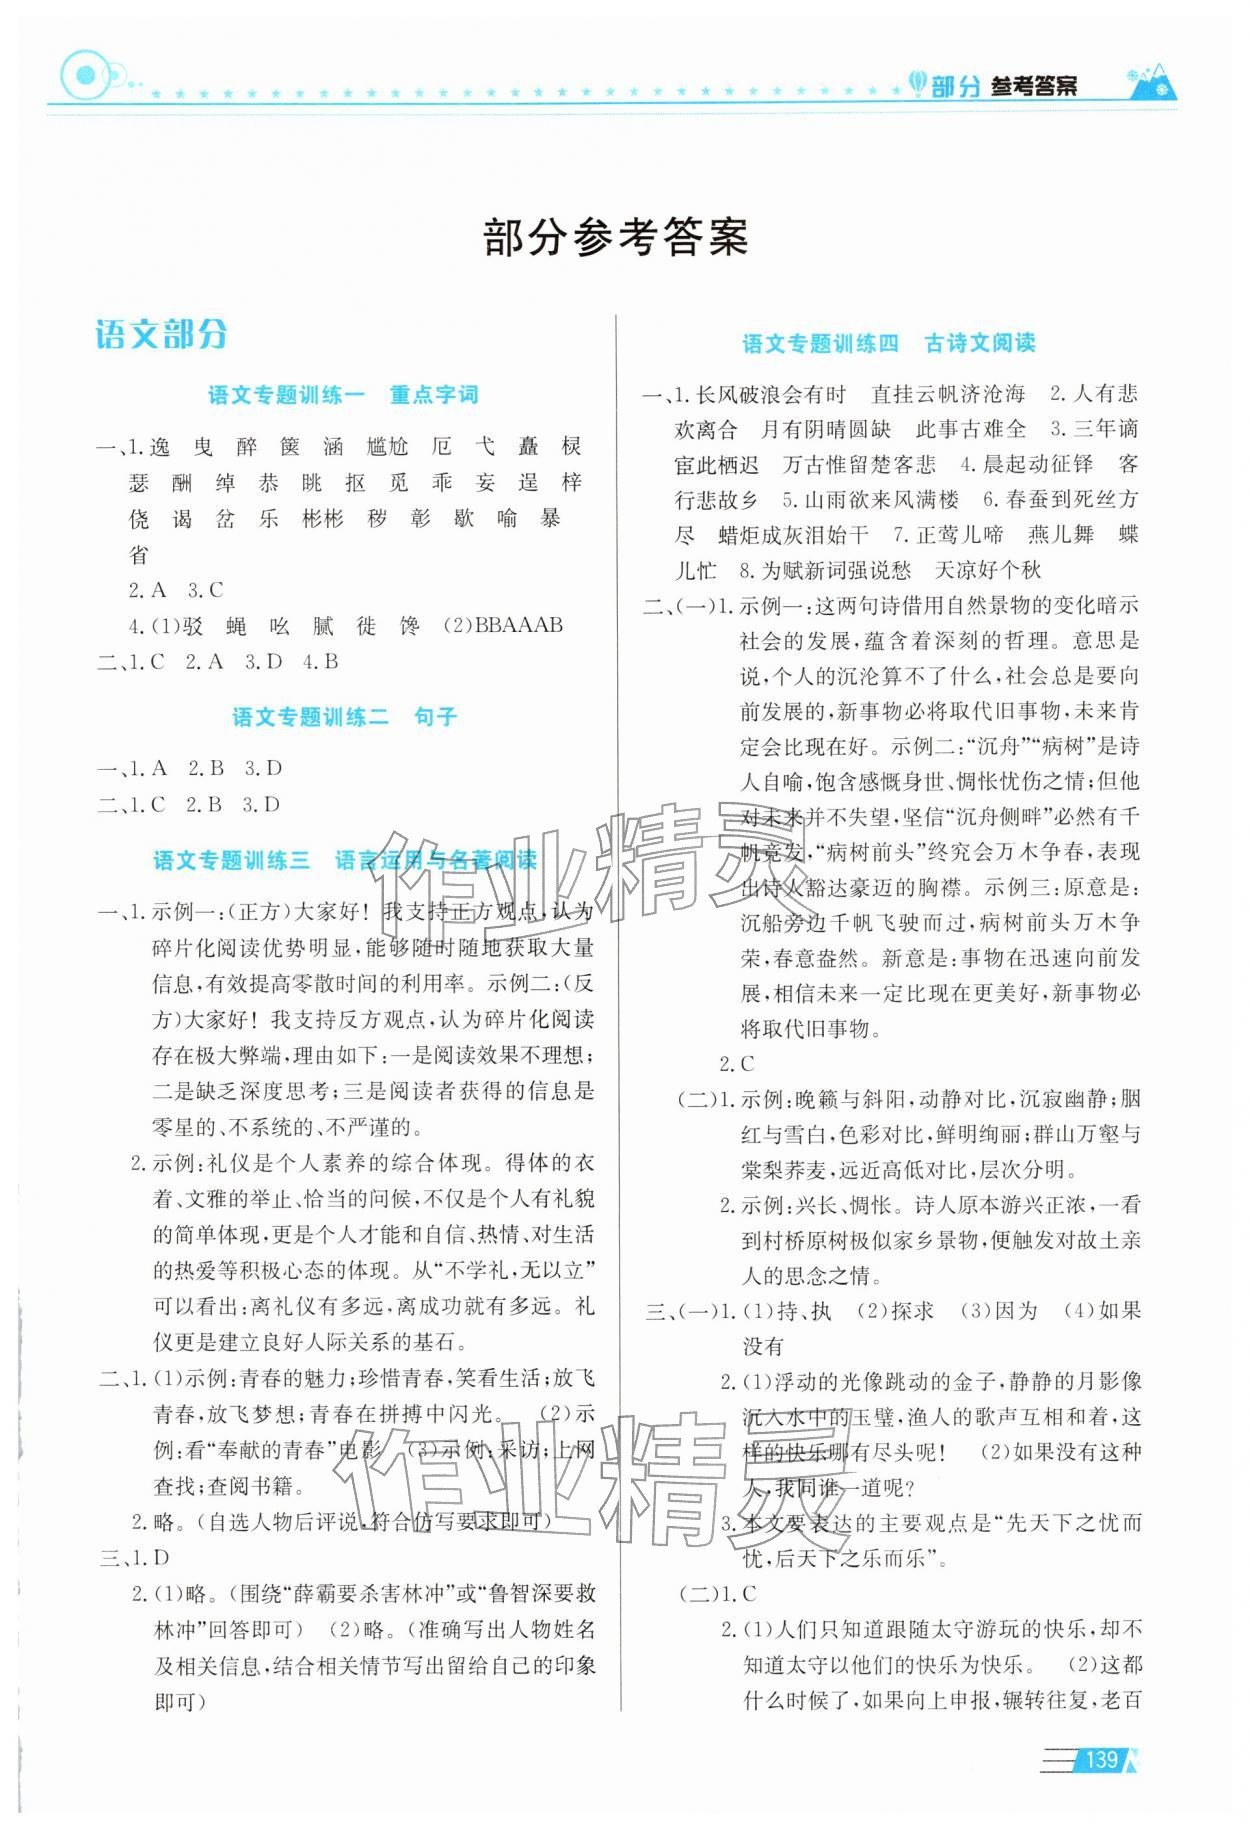 部分 参考答案
部分参考答案
语文部分
语文专题训练一　重点字词
一、1.逸　曳　醉　箧　涵　尴尬　厄　弋　矗　棂
瑟　酬　绰　恭　眺　抠　觅　乖　妄　逞　梓
侥　谒　岔　乐　彬彬　秽　彰　歇　喻　暴
省
2.A　3.C
4.(1)驳　蝇　吆　腻　徙　馋　(2)BBAAAB
二、1.C　2.A　3.D　4.B
语文专题训练二　句子
一、1.A　2.B　3.D
二、1.C　2.B　3.D
语文专题训练三　语言运用与名著阅读
一、1.示例一:(正方)大家好！我支持正方观点,认为
碎片化阅读优势明显,能够随时随地获取大量
信息,有效提高零散时间的利用率。示例二:(反
方)大家好！我支持反方观点,认为碎片化阅读
存在极大弊端,理由如下:一是阅读效果不理想;
二是缺乏深度思考;三是阅读者获得的信息是
零星的、不系统的、不严谨的。
2.示例:礼仪是个人素养的综合体现。得体的衣
着、文雅的举止、恰当的问候,不仅是个人有礼貌
的简单体现,更是个人才能和自信、热情、对生活
的热爱等积极心态的体现。从“不学礼,无以立”
可以看出:离礼仪有多远,离成功就有多远。礼
仪更是建立良好人际关系的基石。
二、1.(1)示例:青春的魅力;珍惜青春,笑看生活;放飞
青春,放飞梦想;青春在拼搏中闪光。　(2)示
例:看“奉献的青春”电影　(3)示例:采访;上网
查找;查阅书籍。
2.略。(自选人物后评说,符合仿写要求即可)
三、1.D
2.(1)略。(围绕“薛霸要杀害林冲”或“鲁智深要救
林冲”回答即可)　(2)略。(准确写出人物姓名
及相关信息,结合相关情节写出留给自己的印象
即可)
语文专题训练四　古诗文阅读
一、1.长风破浪会有时　直挂云帆济沧海　2.人有悲
欢离合　月有阴晴圆缺　此事古难全　3.三年谪
宦此栖迟　万古惟留楚客悲　4.晨起动征铎　客
行悲故乡　5.山雨欲来风满楼　6.春蚕到死丝方
尽　蜡炬成灰泪始干　7.正莺儿啼　燕儿舞　蝶
儿忙　8.为赋新词强说愁　天凉好个秋
二、(一)1.示例一:这两句诗借用自然景物的变化暗示
社会的发展,蕴含着深刻的哲理。意思是
说,个人的沉沦算不了什么,社会总是要向
前发展的,新事物必将取代旧事物,未来肯
定会比现在好。示例二:“沉舟”“病树”是诗
人自喻,饱含感慨身世、惆怅忧伤之情;但他
对未来并不失望,坚信“沉舟侧畔”必然有千
帆竞发,“病树前头”终究会万木争春,表现
出诗人豁达豪迈的胸襟。示例三:原意是:
沉船旁边千帆飞驶而过,病树前头万木争
荣,春意盎然。新意是:事物在迅速向前发
展,相信未来一定比现在更美好,新事物必
将取代旧事物。
2.C
(二)1.示例:晚籁与斜阳,动静对比,沉寂幽静;胭
红与雪白,色彩对比,鲜明绚丽;群山万壑与
棠梨荞麦,远近高低对比,层次分明。
2.示例:兴长、惆怅。诗人原本游兴正浓,一看
到村桥原树极似家乡景物,便触发对故土亲
人的思念之情。
三、(一)1.(1)持、执　(2)探求　(3)因为　(4)如果
没有
2.(1)浮动的光像跳动的金子,静静的月影像
沉入水中的玉璧,渔人的歌声互相和着,这
样的快乐哪有尽头呢！　(2)如果没有这种
人,我同谁一道呢?
3.本文要表达的主要观点是“先天下之忧而
忧,后天下之乐而乐”。
(二)1.C
2.(1)人们只知道跟随太守游玩的快乐,却不
知道太守以他们的快乐为快乐。　(2)这都
什么时候了,如果向上申报,辗转往复,老百
作业精灵
作业精灵
139